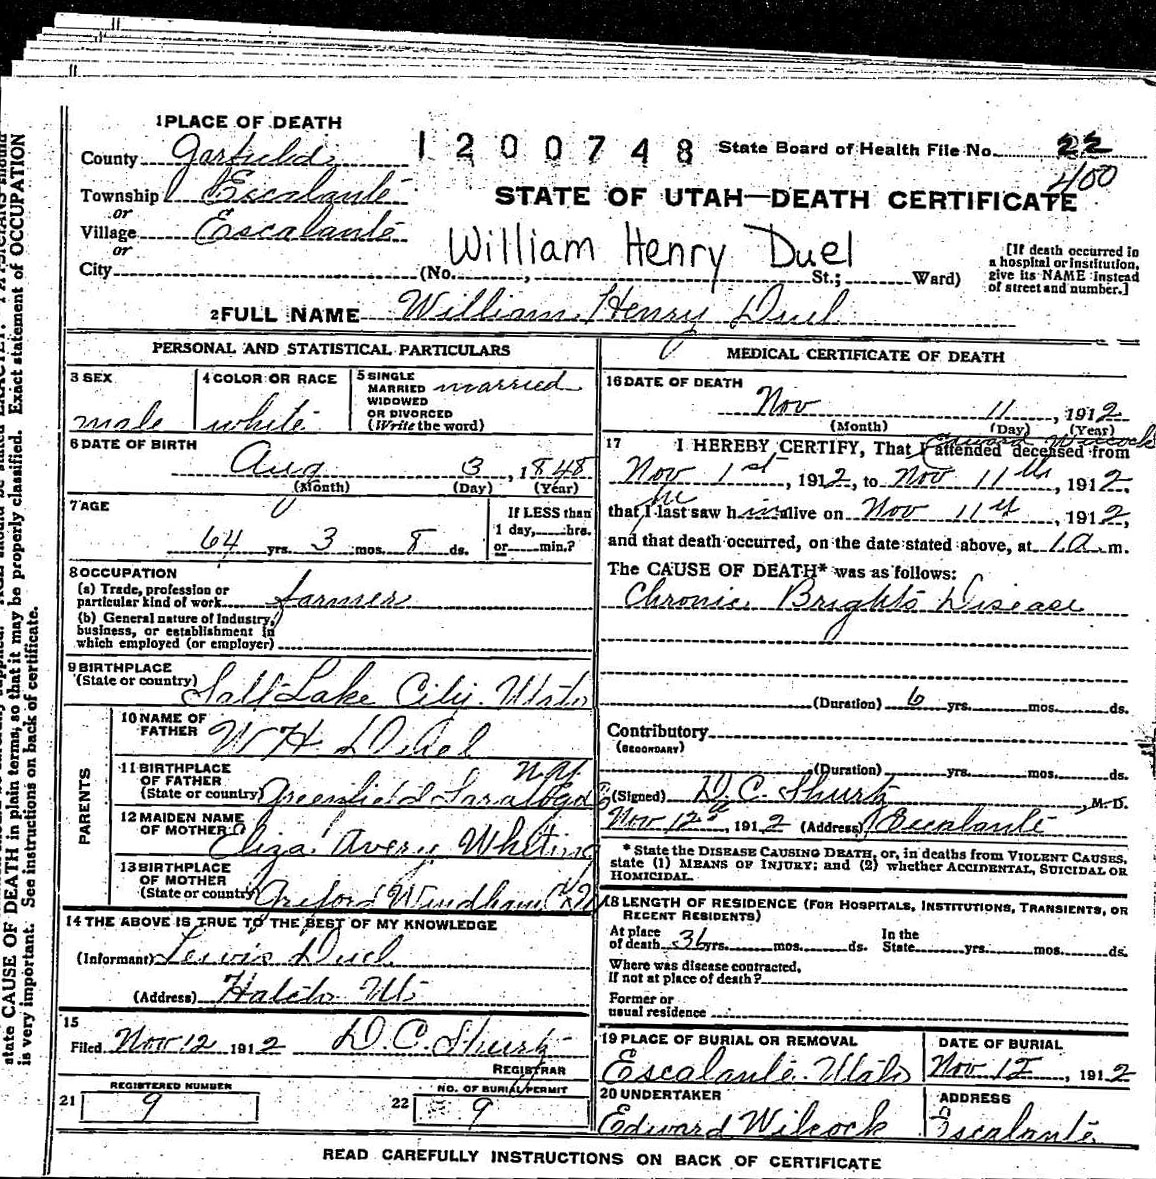 1 PLACE OF DEATH
County Garfield
1200748
State Board of Health File No. 22
400
Township Escalante
or
STATE OF UTAH—DEATH CERTIFICATE
Village Escalante
or
William Henry Duel
City (No. , St.; Ward)
[If death occurred in
a hospital or institution,
give its NAME instead
of street and number.]
2 FULL NAME William Henry Duel
PERSONAL AND STATISTICAL PARTICULARS
3 SEX
male
4 COLOR OR RACE
white
5 SINGLE
MARRIED married
WIDOWED
OR DIVORCED
(Write the word)
6 DATE OF BIRTH
Aug 3, 1848
(Month) (Day) (Year)
7 AGE
64 yrs. 3 mos. 8 ds.
If LESS than
1 day, hrs.
or min.?
8 OCCUPATION
(a) Trade, profession or
particular kind of work farmer
(b) General nature of Industry,
business, or establishment in
which employed (or employer)
9 BIRTHPLACE
(State or country) Salt Lake City. Utah
PARENTS
10 NAME OF
FATHER W H Duel
11 BIRTHPLACE
OF FATHER N.Y.
(State or country) Greenfield Saratoga
12 MAIDEN NAME
OF MOTHER Eliza Avery Whiting
13 BIRTHPLACE
OF MOTHER
(State or country) Windham
14 THE ABOVE IS TRUE TO THE BEST OF MY KNOWLEDGE
(Informant) Lewis Duel
(Address) Ut.
15
Filed Nov 12 1912 D. C. Shurtz
REGISTRAR
REGISTERED NUMBER
21 9
NO. OF BURIAL PERMIT
22 9
MEDICAL CERTIFICATE OF DEATH
16 DATE OF DEATH
Nov 11, 1912
(Month) (Day) (Year)
Edward Wilcock
17 I HEREBY CERTIFY, That I attended deceased from
Nov 1st, 1912, to Nov 11th, 1912,
he
that I last saw him alive on Nov 11th, 1912,
and that death occurred, on the date stated above, at 1 a m.
The CAUSE OF DEATH* was as follows:
Chronic Brights Disease
(Duration) 6 yrs. mos. ds.
Contributory
(SECONDARY)
(Duration) yrs. mos. ds.
(Signed) D. C. Shurtz, M. D.
Nov 12, 1912 (Address) Escalante
* State the DISEASE CAUSING DEATH, or, in deaths from VIOLENT CAUSES,
state (1) MEANS OF INJURY; and (2) whether ACCIDENTAL, SUICIDAL OR
HOMICIDAL.
18 LENGTH OF RESIDENCE (FOR HOSPITALS, INSTITUTIONS, TRANSIENTS, OR
RECENT RESIDENTS)
At place In the
of death 36 yrs. mos. ds. State yrs. mos. ds.
Where was disease contracted,
If not at place of death?
Former or
usual residence
19 PLACE OF BURIAL OR REMOVAL
Escalante. Utah
DATE OF BURIAL
Nov 12, 1912
20 UNDERTAKER
Edward Wilcock
ADDRESS
Escalante
READ CAREFULLY INSTRUCTIONS ON BACK OF CERTIFICATE
Exact statement of OCCUPATION
state CAUSE OF DEATH in plain terms, so that it may be properly classified.
is very important. See instructions on back of certificate.